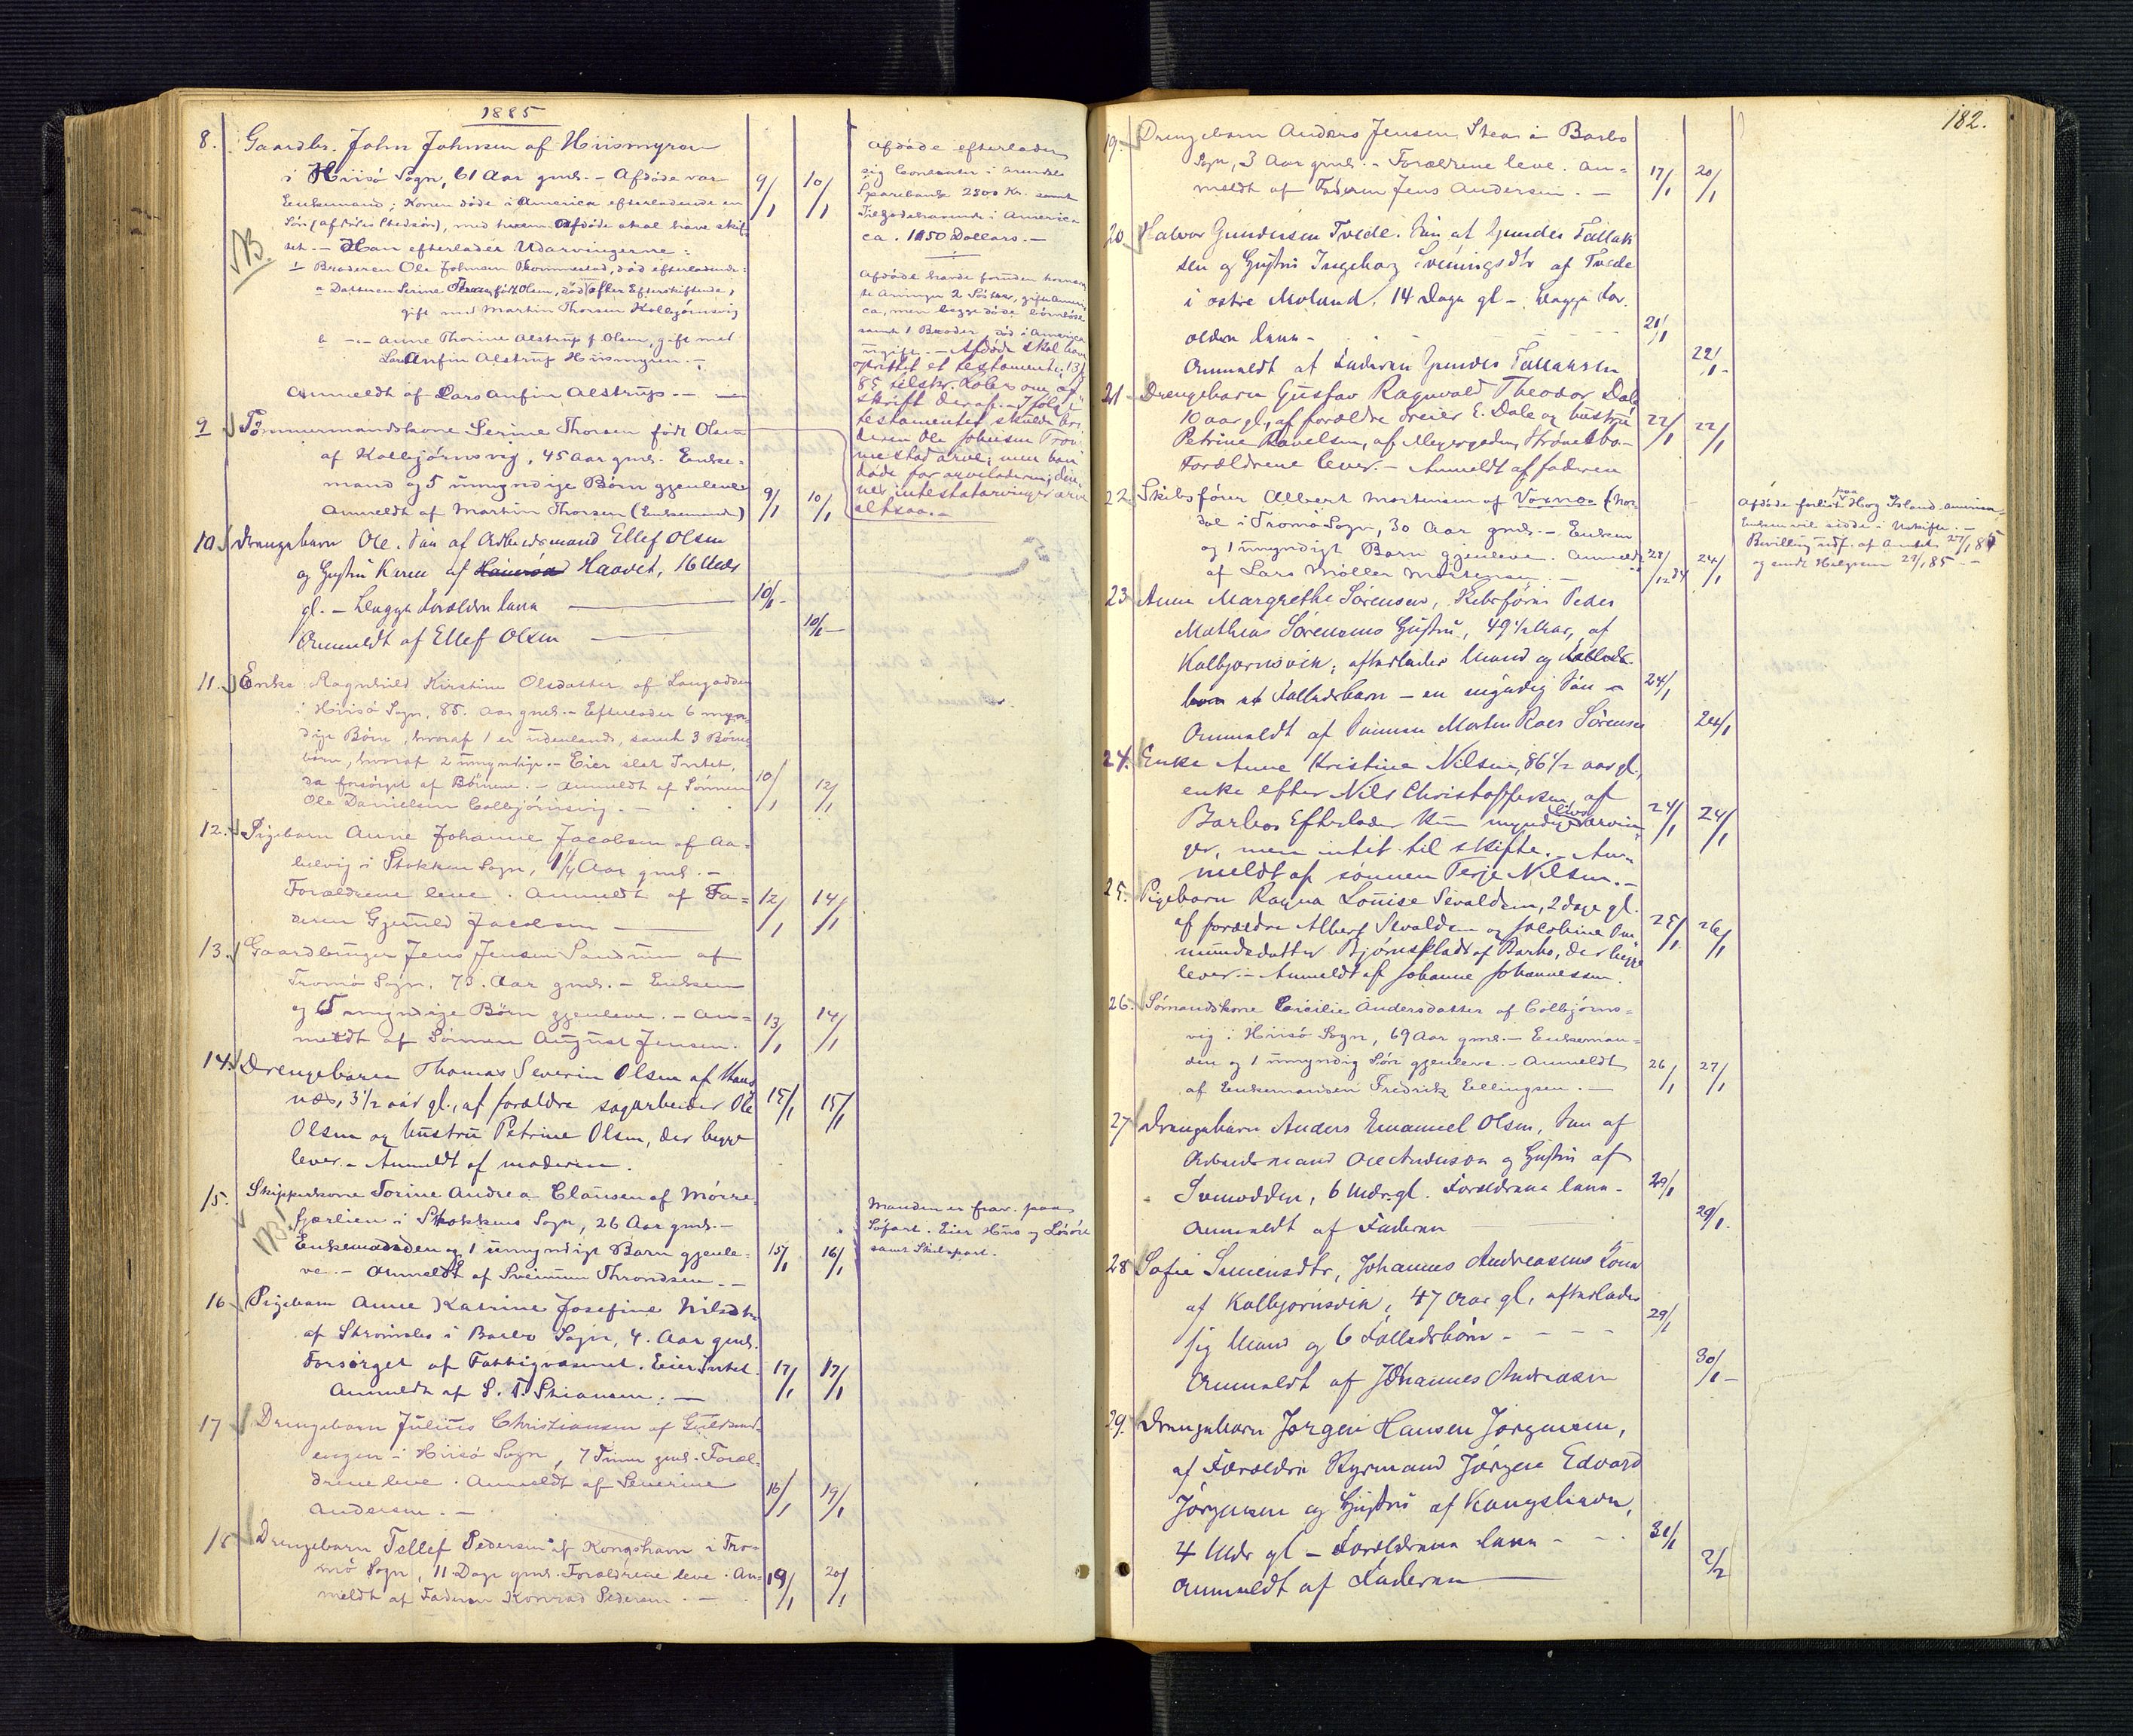 1885
8. Gaardbr. John Johnsen af Hiismyren
i Hiisö Sogn, 61 Aar gml. - Afdöde var
Enkemand; Konen döde i America efterladende en
Sön (afdödes Stedsön), med hvem Afdöde skal have skif-
tet. - Han efterlader Udarvingerne:
NB.
1 Broderen Ole Johnsen Trommestad, död efterladende:
a Datteren Serine Thorsen född Olsen, död (efter Efterskiftende,
gift med Martin Thorsen Kolbjörnsvig
b -"- Anne Thorine Alstrup f. Olsen, gift med
Lars Anfin Alstrup Hiismyren. -
Anmeldt af Lars Anfin Alstrup. -
9/1 10/1
Afdöde efterlader
sig Contanter i Arendals
Sparebank 2800 Kr. samt
Tilgodehavende i America
ca. 1150 Dollars. -
Afdöde havde foruden
2 Söstre, gift i Ameri-
ca, men begge döde barnlöse
samt 1 Broder, död i America
ugift. - Afdöde skal have
oprettet et testamente 13/1
85
skrift deraf. - Ifölge
testamentet skulde bro-
deren Ole Johnsen Trom-
mestad arve; men han
döde för arveladeren; den-
nes intestatarvinger arve
altsaa. -
9 Tømmermandskone Serine Thorsen född Olsen
af Kolbjörnsvig, 45 Aar gml. Enke-
mand og 5 umyndige Børn gjenlever
Anmeldt af Martin Thorsen (Enkemand)
9/1 10/1
10. Drengebarn Ole. Søn af Arbeidsmand Ellef Olsen
og Hustru Karen af Haavet, 16 Uger
gl. - Begge Forældre leve
Anmeldt af Ellef Olsen
10/1 10/1
11. Enke Ragnhild Kirstine Olsdatter af Langodden
i Hiisö Sogn, 85. Aar gml. - Efterlader 6 myn-
dige Børn, hvoraf 1 er udenlands, samt 3 Børne-
børn, hvoraf 2 umyndige. - Eier slet Intet,
da forsörget af Börnene. - Anmeldt af Sønnen
Ole Danielsen Colbjörnsvig. -
10/1 12/1
12. Pigebarn Anne Johanne Jacobsen af Aa-
lelvig i Stokken Sogn, 1 1/4 Aar gml. -
Forældrene leve. Anmeldt af Fa-
deren Gjeruld Jacobsen
12/1 14/1
13. Gaardbruger Jens Jensen Sandum af
Tromö Sogn, 73. Aar gml. - Enken
og 5 myndige Börn gjenleve. - An-
meldt af Sönnen August Jensen.
13/1 14/1
14. Drengebarn Thomas Severin Olsen af
næs, 3 1/2 aar gl., af forældre sagarbeider Ole
Olsen og hustru Petrine Olsen, der begge
lever. - Anmeldt af moderen.
15/1 15/1
15. Skipperkone Torine Andrea Clausen af Mörre-
fjærlien i Stokkens Sogn, 26 Aar gml. -
NB!
Enkemanden og 1 umyndigt Barn gjenle-
ve. - Anmeldt af Sveinum Throndsen. -
15/1 16/1
Manden er frav. paa
Söfart. Eier Hus og Lösöre
samt Skibspart.
16 Pigebarn Anne Katrine Josefine Nilsdtr.
af Strömsbo i Barbo Sogn, 4. Aar gml.
Forsörget af Fattigvæsenet. Eier Intet.
Anmeldt af S. T. Stiansen. -
17/1 17/1
17 Drengebarn Julius Christiansen af Guldsmed-
engen i Hiisö Sogn, 7 Timer gml. Foræl-
drene leve. Anmeldt af Severine
Andersen. -
16/1 19/1
18 Drengebarn Tellef Pedersen af Kongshavn i Tro-
mö Sogn, 11 Dage gml. Forældrene leve. An-
meldt af Faderen Konrad Pedersen. -
19/1 20/1
182.
19. Drengebarn Anders Jensen Stea i Barbo
Sogn, 3 Aar gml. - Forældrene leve. An-
meldt af Faderen Jens Andersen. -
17/1 20/1
20 Halvor Gundersen Tvede. Søn af Gunder Tallak
sen og Hustru Ingeborg Sveningsdtr af Tvede
i østre Moland. 14 Dage gl - Begge For-
ældre leve -
Anmeldt af Faderen Gunder Tallaksen
21/1 22/1
21 Drengebarn Gustav Ragnvald Theodor Dale
10 aar gl., af forældre dreier E. Dale og hustru
Petrine Pavelsen, af Meyergaden, Strømsbo -
Forældrene lever. - Anmeldt af faderen
22/1 22/1
22 Skibsfører Albert Mortensen af Voxnes (Nor-
dal i Tromö Sogn, 30 Aar gml. - Enken
og 1 umyndigt Barn gjenleve. Anmeldt
af Lars Møller Mortensen. -
28/12 84 24/1
Afdöde forlist paa Hog Island America
Enken vil sidde i Uskifte. -
Bevilling udf. af Amtet 27/1 85
og sendt Helgesen 29/1 85. -
23 Anne Margrethe Sørensen, Skibsfører Peder
Mathias Sørensens Hustru, 49 1/2 Aar, af
Kolbjørnsvik; efterlader Mand og
et Fællesbarn - en myndig Søn -
Anmeldt af Sønnen Morten Roer Sørensen
24/1 24/1
24. Enke Anne Kristine Nilsen, 86 1/2 aar gl.,
enke efter Nils Christoffersen af
Barbo. Efterlader kun myndige livsarvin-
ger, men intet til skifte. - An-
meldt af sønnen Terje Nilsen. -
24/1 24/1
25. Pigebarn Ragna Louise Sevaldsen, 2 dage gl.
af forældre Albert Sevaldsen og Jacobine
mundsdatter Bjørnsplads af Barbo, der begge
lever. - Anmeldt af Johanne Johannessen.
25/1 26/1
26. Sömandskone Cecilie Andersdatter af Colbjörns-
vig i Hiisö Sogn, 69 Aar gml. - Enkeman-
den og 1 umyndig Sön gjenleve. - Anmeldt
af Enkemanden Fredrik Ellingsen. -
26/1 27/1
27 Drengebarn Anders Emanuel Olsen, Søn af
Arbeidsmand Ole Anderson og Hustru af
Svenodden, 6 Mdr. gl. Forældrene leve -
Anmeldt af Faderen
29/1 29/1.
28 Sofie Simensdtr, Johannes Andreasens Kone
af Kolbjørnsvik, 47 Aar gl, efterlader
sig Mand og 6 Fællesbørn - - - -
Anmeldt af Johannes Andreasen
29/1 30/1 -
29. Drengebarn Jørgen Hansen Jørgensen,
af Forældre Styrmand Jørgen Edvard
Jørgensen og Hustru af Kongshavn,
4 Mdr gl - Forældrene leve - - -
Anmeldt af Faderen
31/1 2/2